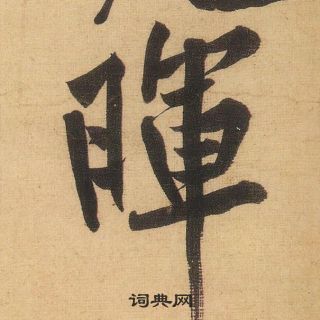 暉
词典网